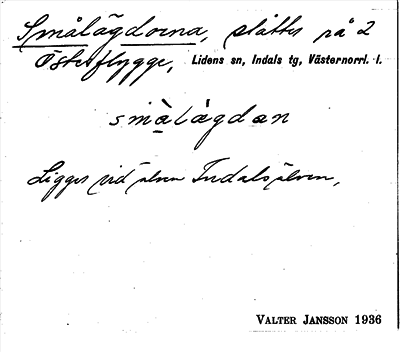 Smålägdorna, slåtter på 2
Österflygge, Lidens sn, Indals tg, Västernorrl. l.
smålägdan
Ligger vid älven Indalsälven,
VALTER JANSSON 1936